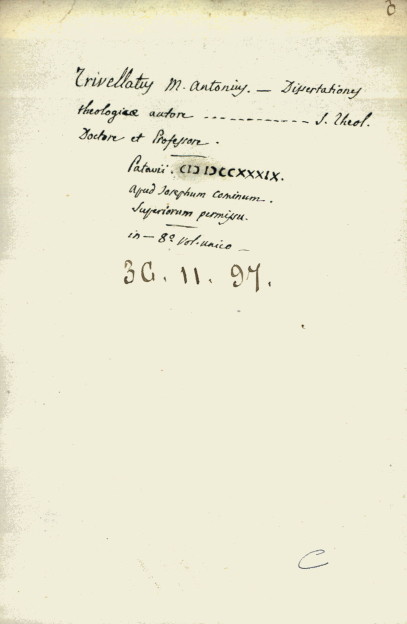 Trivellatus M. Antonius. — Dissertationes
theologicæ autore ------------ S. Theol.
Doctore et Professore.
Patavii. CIƆIƆCCXXXIX.
apud Josephum Cominum.
Superiorum permissu.
in-8º Vol. unico —
3G. 11. 97.
C